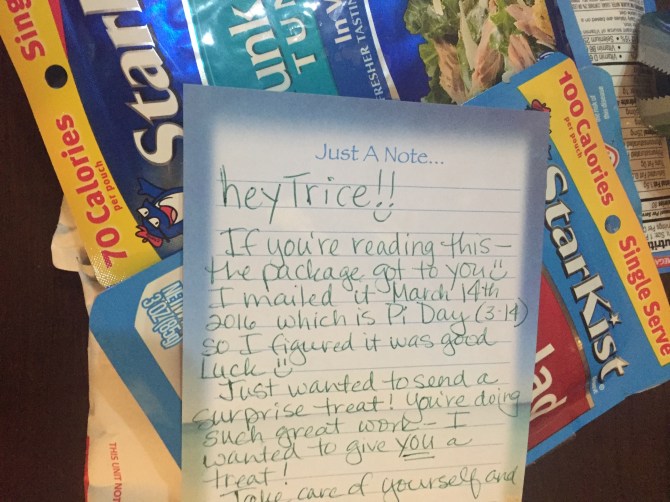 Single
70 Calories
per pouch
StarK
unk
TUN
In V
FRESHER TASTIN
100 Calories
per pouch
Single Serve
StarKist
lad
NEW
THIS UNIT NOT
Just A Note...
hey Trice!!
If you're reading this-
the package got to you
I mailed it March 14th
2016 which is Pi Day (3.14)
so I figured it was good
luck
Just wanted to send a
surprise treat! You're doing
such great work - I
wanted to give you a
treat!
Take care of yourself and